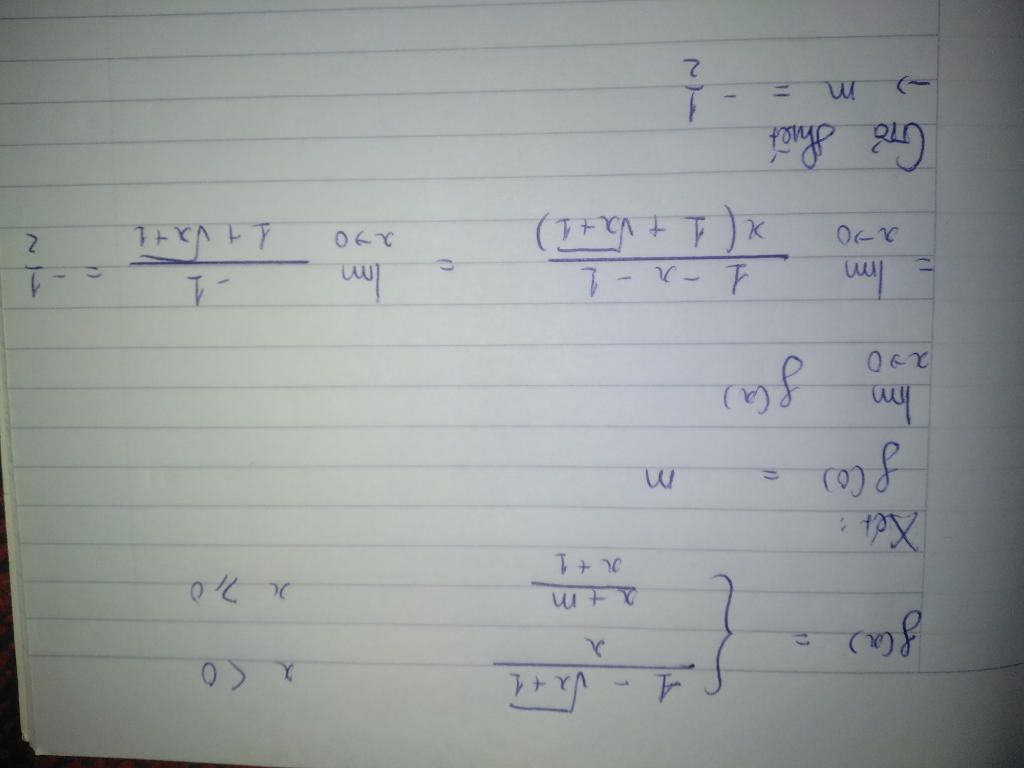 f(x) = { (1 - √(x+1))/x   x < 0
(x + m)/(x + 1)   x ⩾ 0
Xét:
f(0) = m
lim x→0 f(x)
= lim x→0 (1 - x - 1)/(x(1 + √(x+1))) = lim x→0 (-1)/(1 + √(x+1)) = -1/2
→ m = -1/2